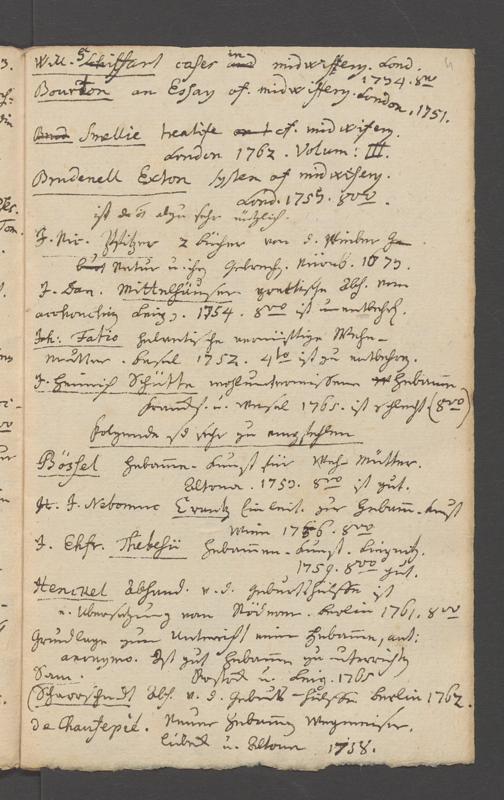 Will. Schiffart cases in midwiffery. Lond.
1734. 8vo
Bourton an Essay of midwiffery. London, 1751.
Smellie treatise of midwifery.
London 1762. Volum: III.
Brudenell Exton system of midwifery.
Lond. 1755. 8vo.
ist das allzu sehr nützlich.
J. Nic. Pfitzer 2 bücher von d. Weiber
Natur u. ihren Gebrech. Nürnb. 1673.
J. Dan. Mittelhäuser practische Abh. vom
accouchiren Leipz. 1754. 8vo ist unentbehrl.
Joh: Fatio helvetische vernünftige Wehe-
mutter. basel 1752. 4to ist zu entbehren.
J. Heinrich Schütte wohlunterwiesene Hebamme
u. Wesel 1765. ist schlecht (8vo)
folgende ist sehr zu empfehlen
Bössel Hebamm-kunst für Weh-mütter.
Altona. 1753. 8vo ist gut.
H. J. Nebomuc Crantz Einleit. zur Hebamm-kunst
Wien 1756. 8vo
J. Ehfr. Thebesii Hebammen-kunst. Liegnitz.
1759. 8vo gut.
Henckel Abhand. v. d. Geburtshülffe ist
e. Übersetzung vom Röderer. Berlin 1761. 8vo
Grundlage zum Unterricht einer Hebamme, aut:
anonymo. Ist gut Hebamme zu unterricht
Sam. Rostock u. Leipz. 1765
Scharrschmidt Abh. v. d. Geburts-hülffe berlin 1762.
de Chantepié. Neuer Hebammen Wegweiser.
Lübeck u. Altona 1758.